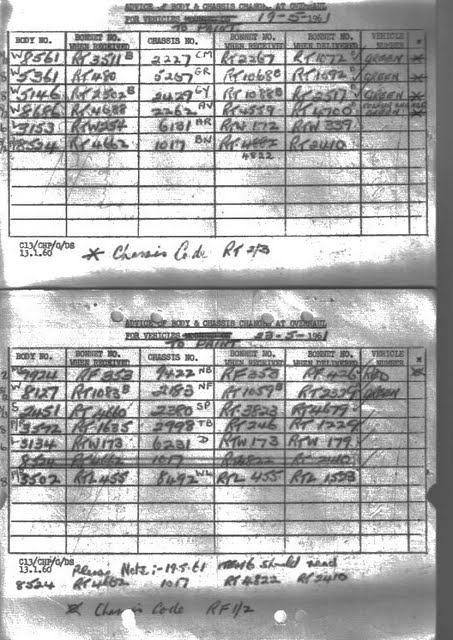 ADVICE OF BODY & CHASSIS CHANGE AT OVERHAUL
FOR VEHICLES 19-5-1961
TO PAINT
BODY NO. BONNET NO. WHEN RECEIVED CHASSIS NO. BONNET NO. WHEN RECEIVED BONNET NO. WHEN DELIVERED VEHICLE NUMBER *
W8561 RT3511B 2227 CM RT2267 RT1072 GREEN *
W5361 RT480 5267 GR RT1068B RT1692 GREEN *
W5146 RT2502B 3429 GY RT1088B RT2517 GREEN *
W8686 RT4688 2262 AV RT4559 RT4700 GREEN *
3153 RTW254 6131 AR RTW172 RTW339
8534 RT4662 1017 BN RT4882 RT2410
4822
C13/CHP/O/DS
13.1.60
* Chassis Code RT 2/3
ADVICE OF BODY & CHASSIS CHANGE AT OVERHAUL
FOR VEHICLES 23-5-1961
TO PAINT
BODY NO. BONNET NO. WHEN RECEIVED CHASSIS NO. BONNET NO. WHEN RECEIVED BONNET NO. WHEN DELIVERED VEHICLE NUMBER *
7974 RF353 9422 NB RF353 RF426 RED *
W8127 RT1083B 2183 NF RT1057B RT2379 GREEN
S2451 RT4460 2380 SP RT3823 RT4679
3572 RT1635 2998 TB RT246 RT1229
3134 RTW173 6231 D RTW173 RTW179
8534 RT4662 1017 RT4822 RT2410
3502 RTL455 8492 WL RTL455 RTL1553
C13/CHP/O/DS
13.1.60
Please Note:- 19.5.61 should read
8524 RT4662 1017 RT4822 RT2410
* Chassis Code RF1/2